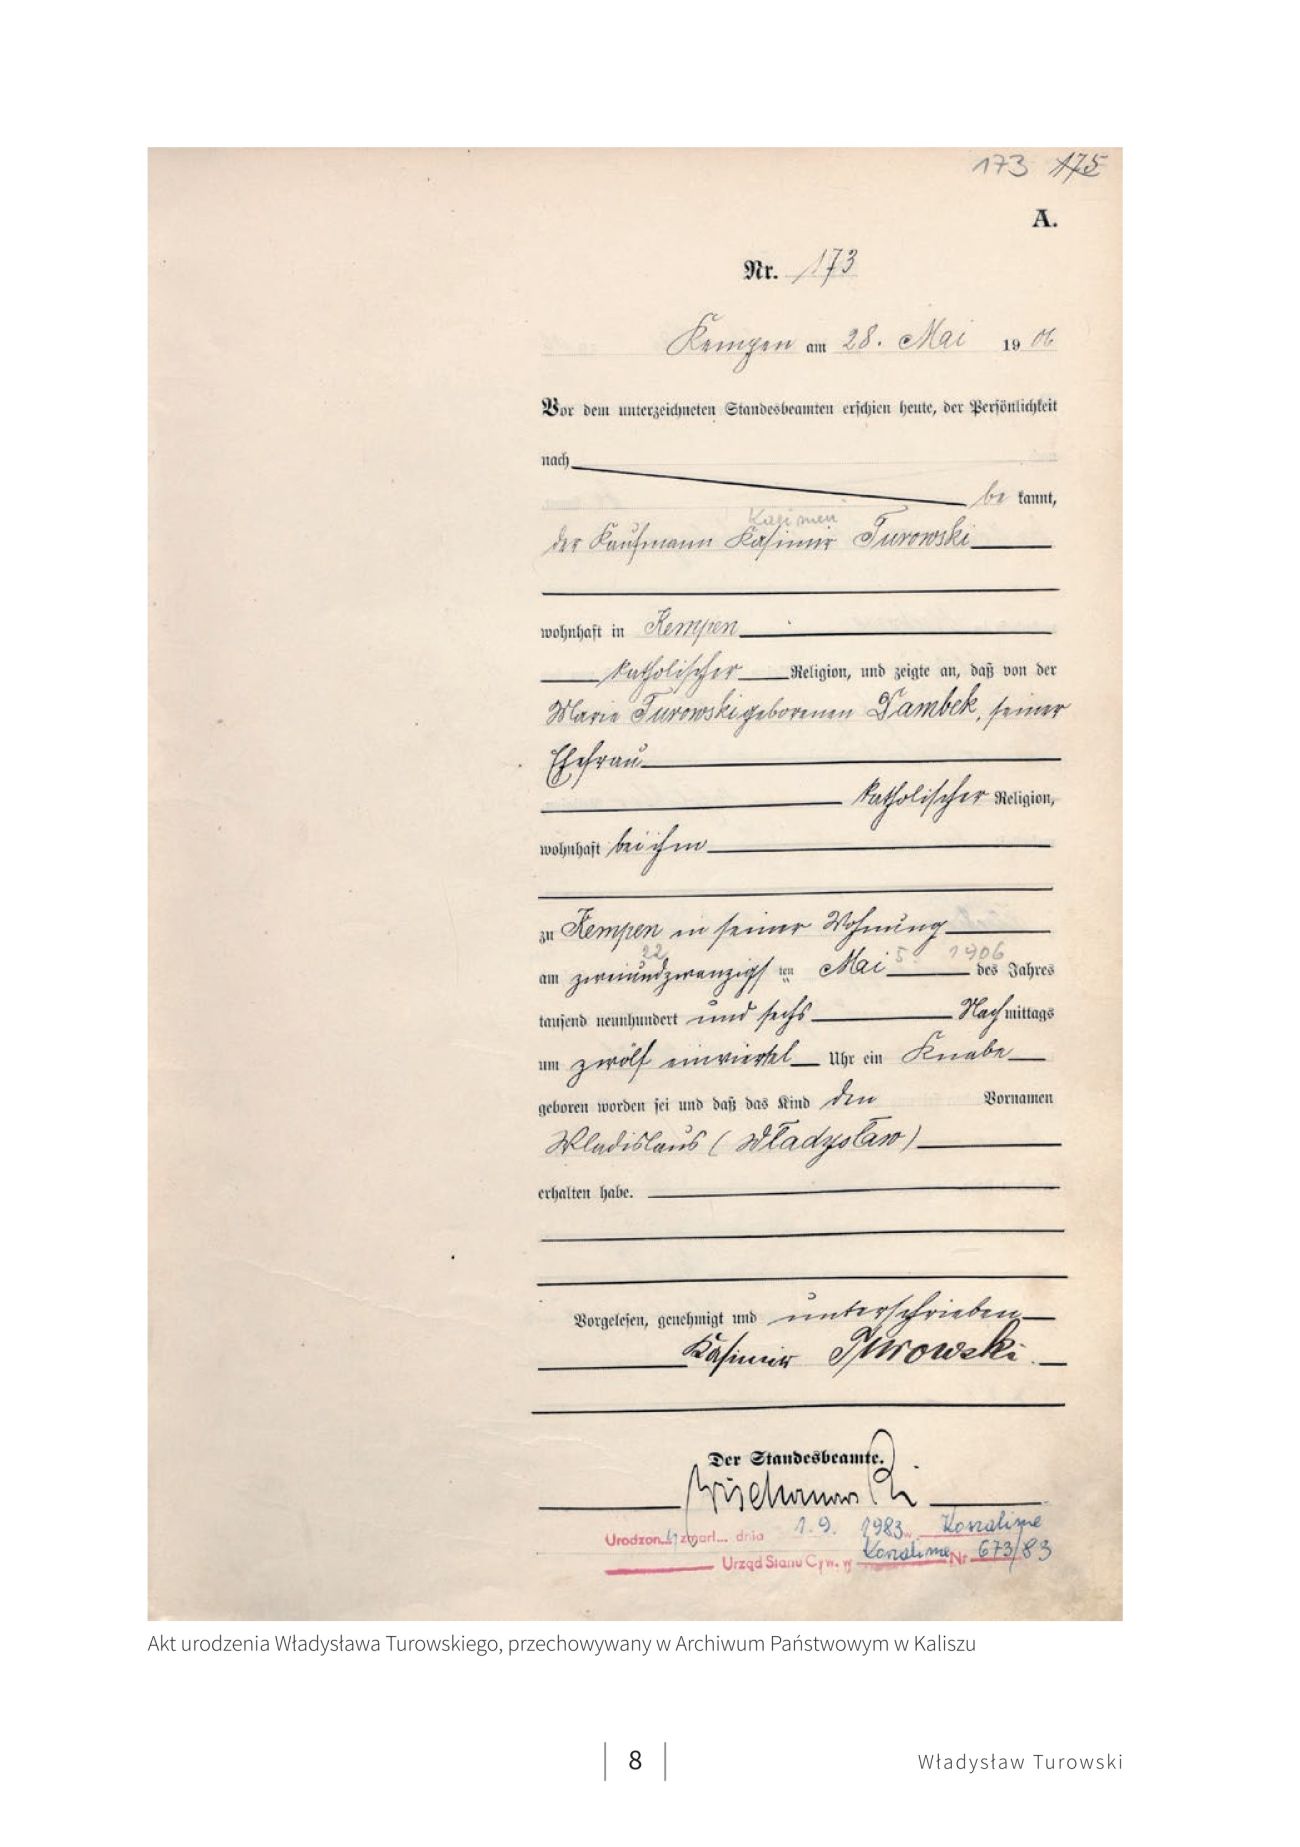 173 175
A.
Nr. 173
Kempen am 28. Mai 1906
Vor dem unterzeichneten Standesbeamten erschien heute, der Persönlichkeit
nach
be kannt,
der Kaufmann Kasimir Turowski
wohnhaft in Kempen
katholischer Religion, und zeigte an, daß von der
Marie Turowski geborenen Dambek, seiner
Ehefrau
katholischer Religion,
wohnhaft bei ihm
zu Kempen in seiner Wohnung
22 5. 1906
am zweiundzwanzigsten Mai des Jahres
tausend neunhundert und sechs Nachmittags
um zwölf einviertel Uhr ein Knabe
geboren worden sei und daß das Kind den Vornamen
Wladislaus (Władysław)
erhalten habe.
Vorgelesen, genehmigt und unterschrieben
Kasimir Turowski.
Der Standesbeamte.
Urodzon..y zmarł... dnia 1.9. 1983 w Koszalinie
Urząd Stanu Cyw. w Koszalinie Nr 673/83
Akt urodzenia Władysława Turowskiego, przechowywany w Archiwum Państwowym w Kaliszu
8
Władysław Turowski